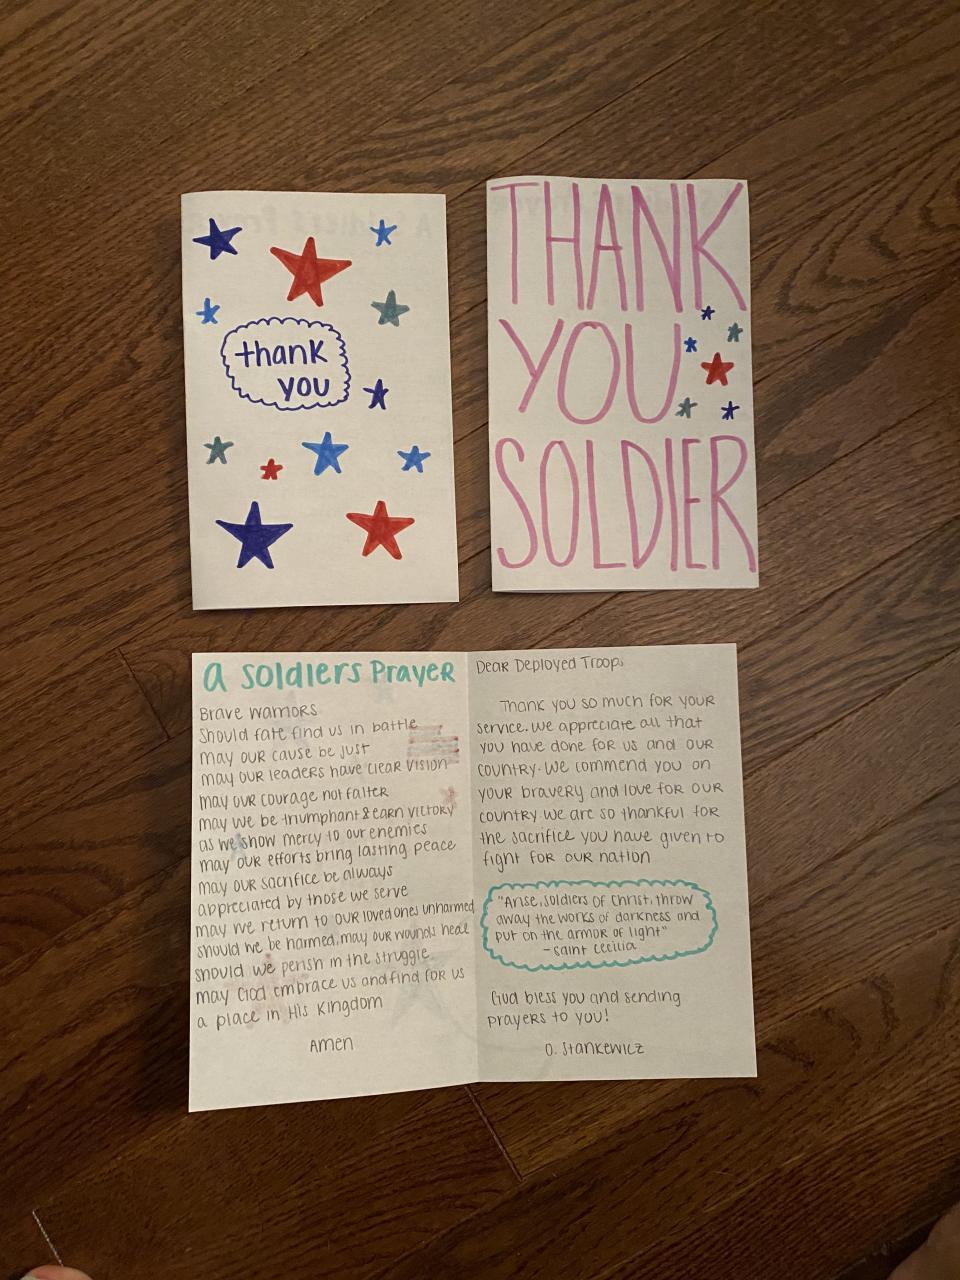 thank
you
THANK
YOU
SOLDIER
a soldiers Prayer
Brave warriors
Should fate find us in battle
may our cause be just
may our leaders have clear vision
may our courage not falter
may we be triumphant & earn victory
as we show mercy to our enemies
may our efforts bring lasting peace
may our sacrifice be always
appreciated by those we serve
may we return to our loved ones unharmed
should we be harmed, may our wounds heal
should we perish in the struggle
may God embrace us and find for us
a place in His Kingdom
Amen
Dear Deployed Troops
Thank you so much for your
service. We appreciate all that
you have done for us and our
country. We commend you on
your bravery and love for our
country. We are so thankful for
the sacrifice you have given to
fight for our nation
"Arise, soldiers of Christ, throw
away the works of darkness and
put on the armor of light"
- Saint Cecilia
God bless you and sending
prayers to you!
O. Stankewicz